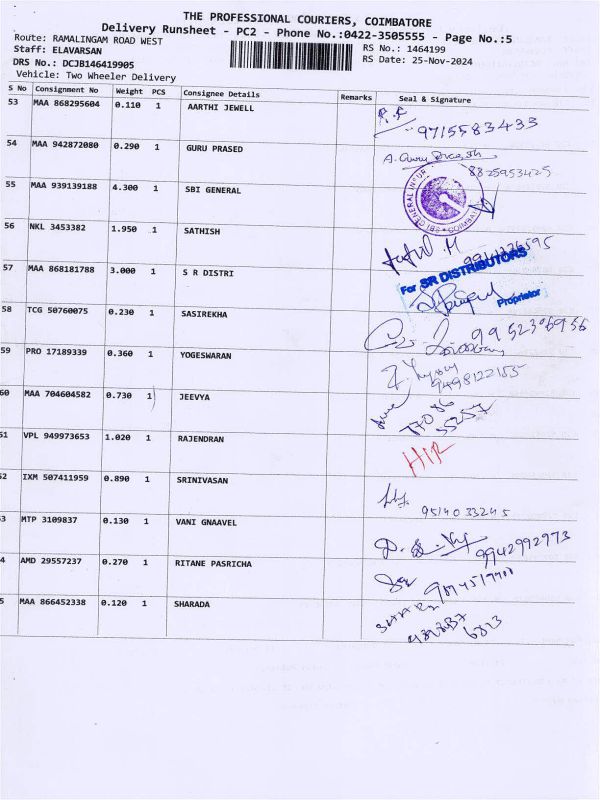 THE PROFESSIONAL COURIERS, COIMBATORE
Delivery Runsheet - PC2 - Phone No.:0422-3505555 - Page No.:5
Route: RAMALINGAM ROAD WEST RS No.: 1464199
Staff: ELAVARSAN RS Date: 25-Nov-2024
DRS No.: DCJB146419905
Vehicle: Two Wheeler Delivery
S No Consignment No Weight PCS Consignee Details Remarks Seal & Signature
53 MAA 868295604 0.110 1 AARTHI JEWELL
9715583433
54 MAA 942872080 0.290 1 GURU PRASED
8825953425
55 MAA 939139188 4.300 1 SBI GENERAL
SBI GENERAL INSUR
56 NKL 3453382 1.950 1 SATHISH
57 MAA 868181788 3.000 1 S R DISTRI
For SR DISTRIBUTORS
Proprietor
58 TCG 50760075 0.230 1 SASIREKHA
59 PRO 17189339 0.360 1 YOGESWARAN
9498122155
60 MAA 704604582 0.730 1 JEEVYA
61 VPL 949973653 1.020 1 RAJENDRAN
52 IXM 507411959 0.890 1 SRINIVASAN
9514033245
3 MTP 3109837 0.130 1 VANI GNAAVEL
9942992973
4 AMD 29557237 0.270 1 RITANE PASRICHA
5 MAA 866452338 0.120 1 SHARADA